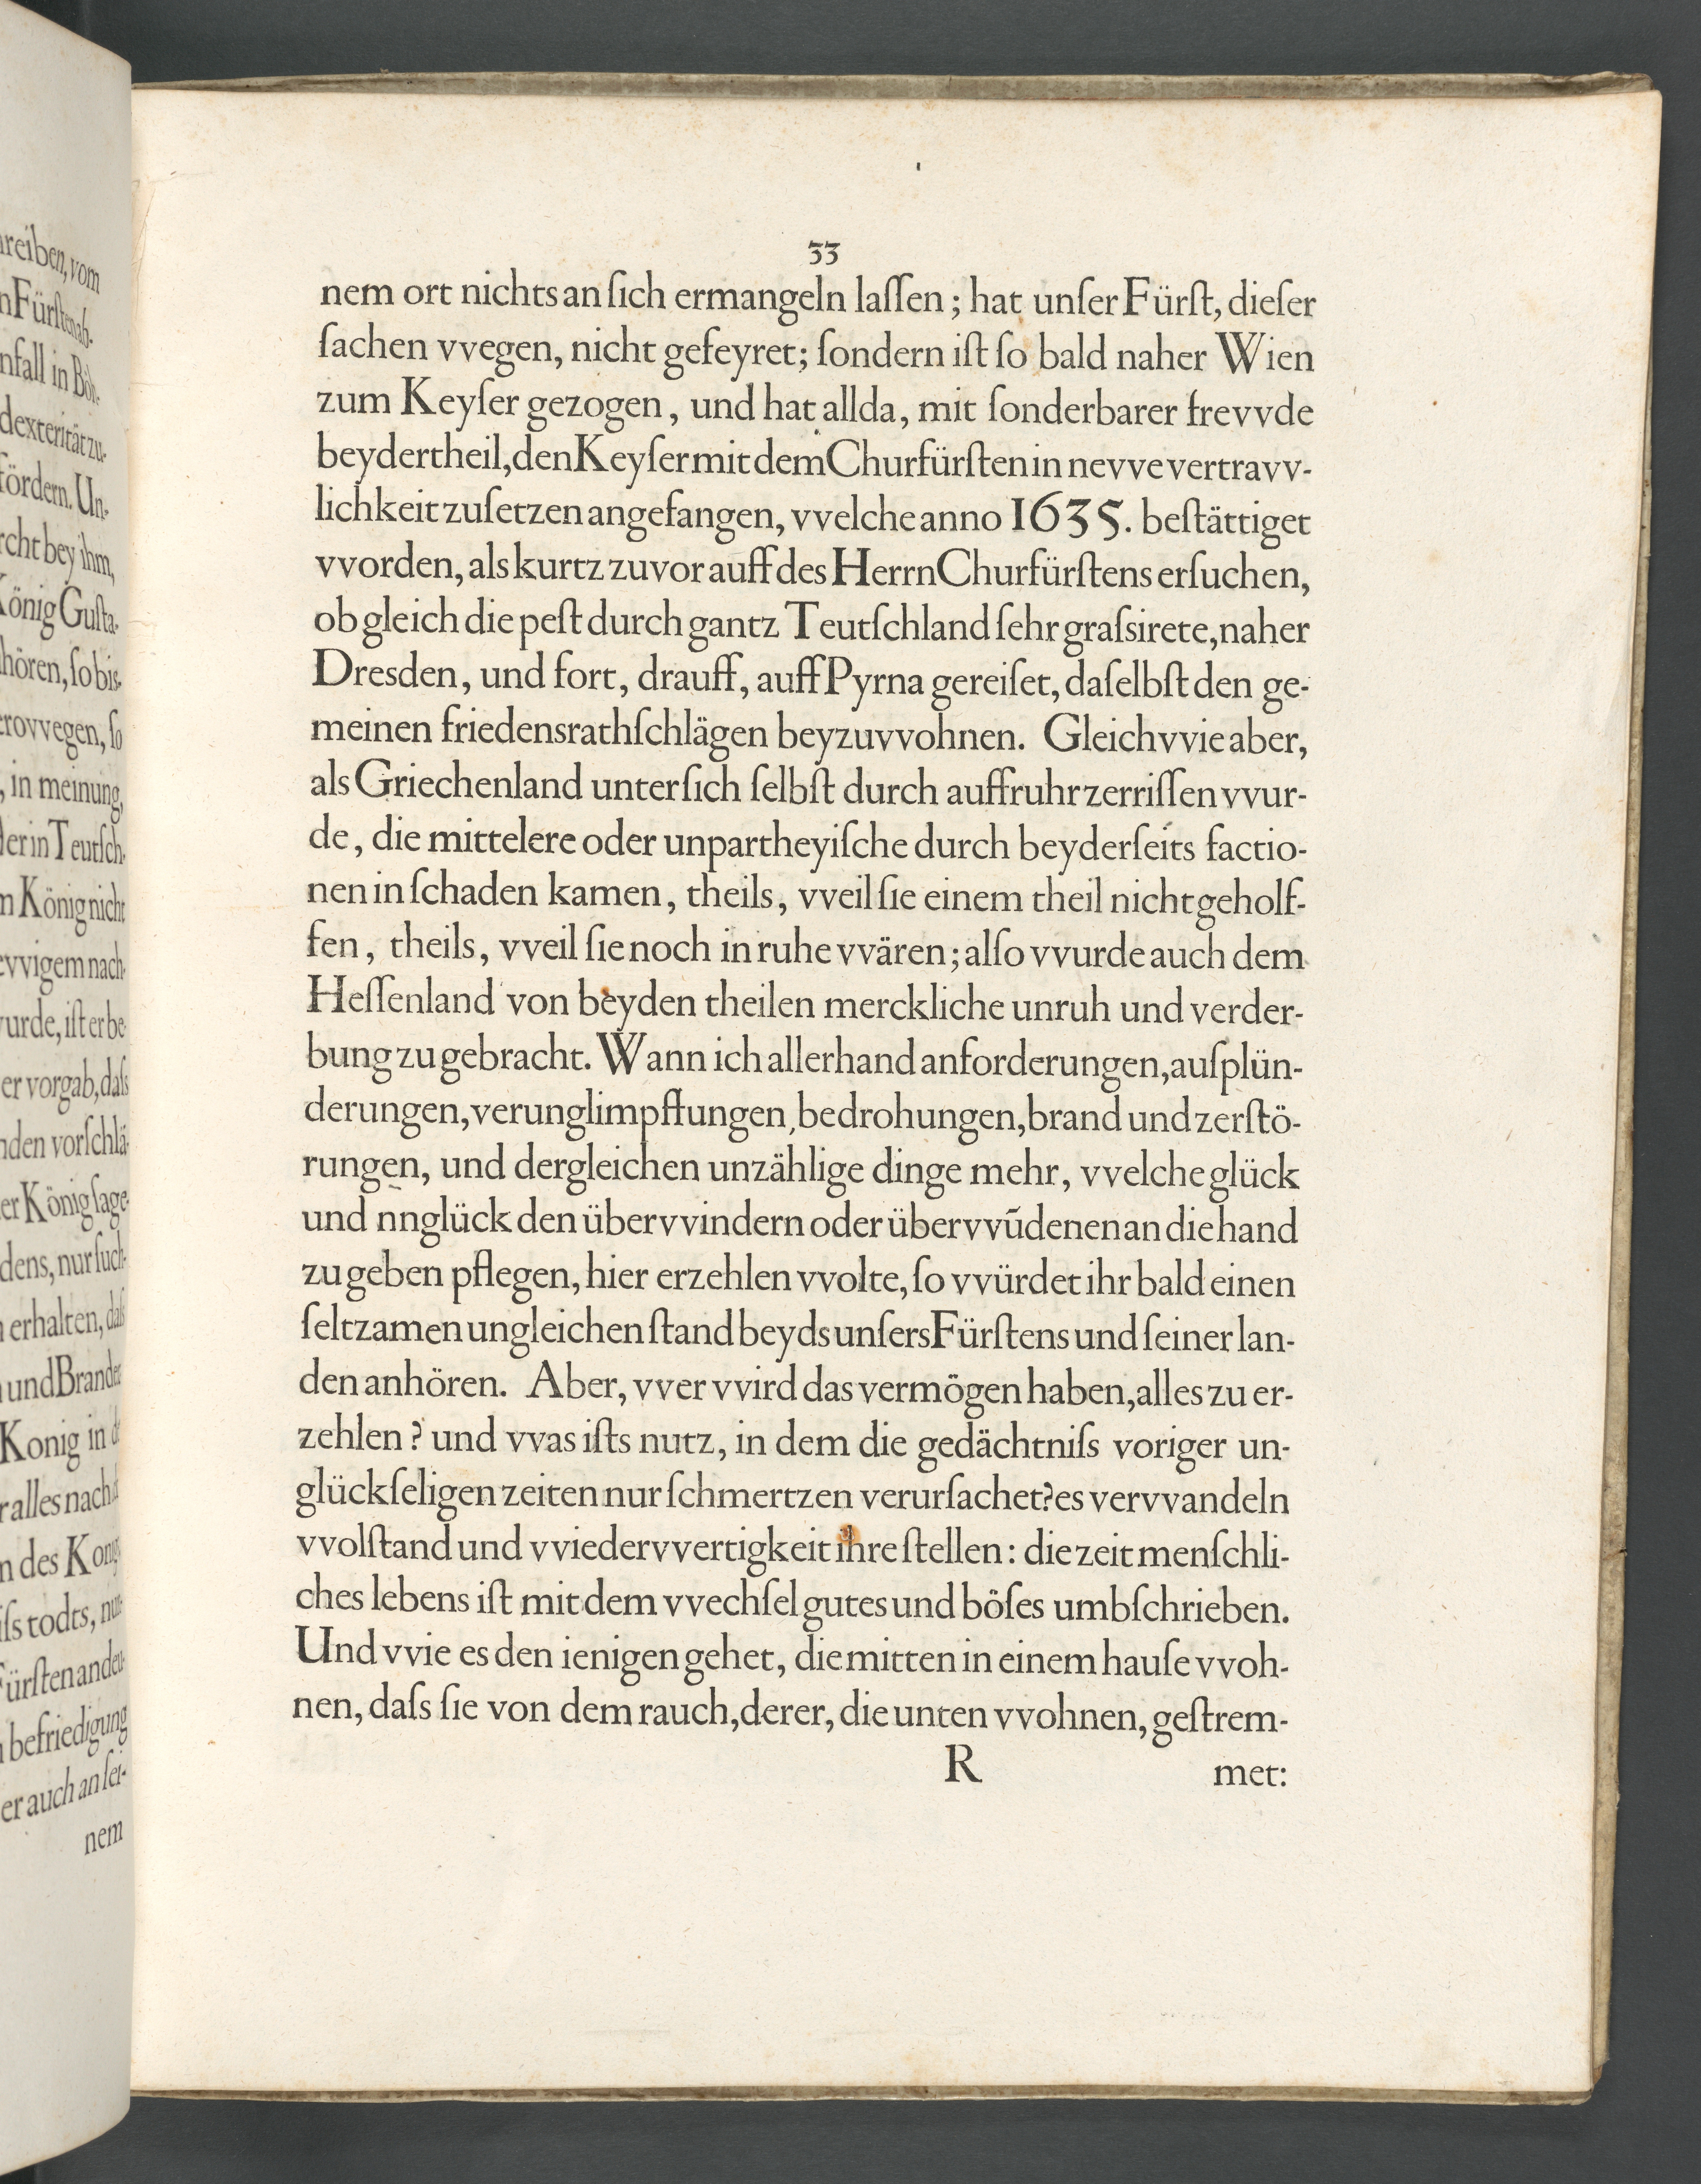 hreiben, vom
nFürſtenab-
nfall in Böh-
dexterität zu-
fördern. Un-
rcht bey ihm,
König Guſta-
hören, ſo bis-
erovvegen, ſo
, in meinung,
der in Teutſch-
m König nicht
evvigem nach-
vurde, iſt er be-
er vorgab, daſs
nden vorſchlä-
er König ſage-
dens, nur ſuch-
n erhalten, daſs
und Branden
Konig in
r alles nach
n des Konigs
iſs todts, nur
Fürſten anden-
n befriedigung
er auch an ſei-
nem
33
nem ort nichts an ſich ermangeln laſſen; hat unſer Fürſt, dieſer
ſachen vvegen, nicht gefeyret; ſondern iſt ſo bald naher Wien
zum Keyſer gezogen, und hat allda, mit ſonderbarer frevvde
beydertheil, den Keyſer mit dem Churfürſten in nevve vertravv-
lichkeit zuſetzen angefangen, vvelche anno 1635. beſtättiget
vvorden, als kurtz zuvor auff des Herrn Churfürſtens erſuchen,
ob gleich die peſt durch gantz Teutſchland ſehr graſsirete, naher
Dresden, und fort, drauff, auff Pyrna gereiſet, daſelbſt den ge-
meinen friedensrathſchlägen beyzuvvohnen. Gleichvvie aber,
als Griechenland unter ſich ſelbſt durch auffruhr zerriſſen vvur-
de, die mittelere oder unpartheyiſche durch beyderſeits factio-
nen in ſchaden kamen, theils, vveil ſie einem theil nicht geholf-
fen, theils, vveil ſie noch in ruhe vvären; alſo vvurde auch dem
Heſſenland von beyden theilen merckliche unruh und verder-
bung zu gebracht. Wann ich allerhand anforderungen, auſplün-
derungen, verunglimpffungen, bedrohungen, brand und zerſtö-
rungen, und dergleichen unzählige dinge mehr, vvelche glück
und nnglück den übervvindern oder übervvūdenen an die hand
zu geben pflegen, hier erzehlen vvolte, ſo vvürdet ihr bald einen
ſeltzamen ungleichen ſtand beyds unſers Fürſtens und ſeiner lan-
den anhören. Aber, vver vvird das vermögen haben, alles zu er-
zehlen? und vvas iſts nutz, in dem die gedächtniſs voriger un-
glückſeligen zeiten nur ſchmertzen verurſachet? es vervvandeln
vvolſtand und vviedervvertigkeit ihre ſtellen: die zeit menſchli-
ches lebens iſt mit dem vvechſel gutes und böſes umbſchrieben.
Und vvie es den ienigen gehet, die mitten in einem hauſe vvoh-
nen, daſs ſie von dem rauch, derer, die unten vvohnen, geſtrem-
R met: